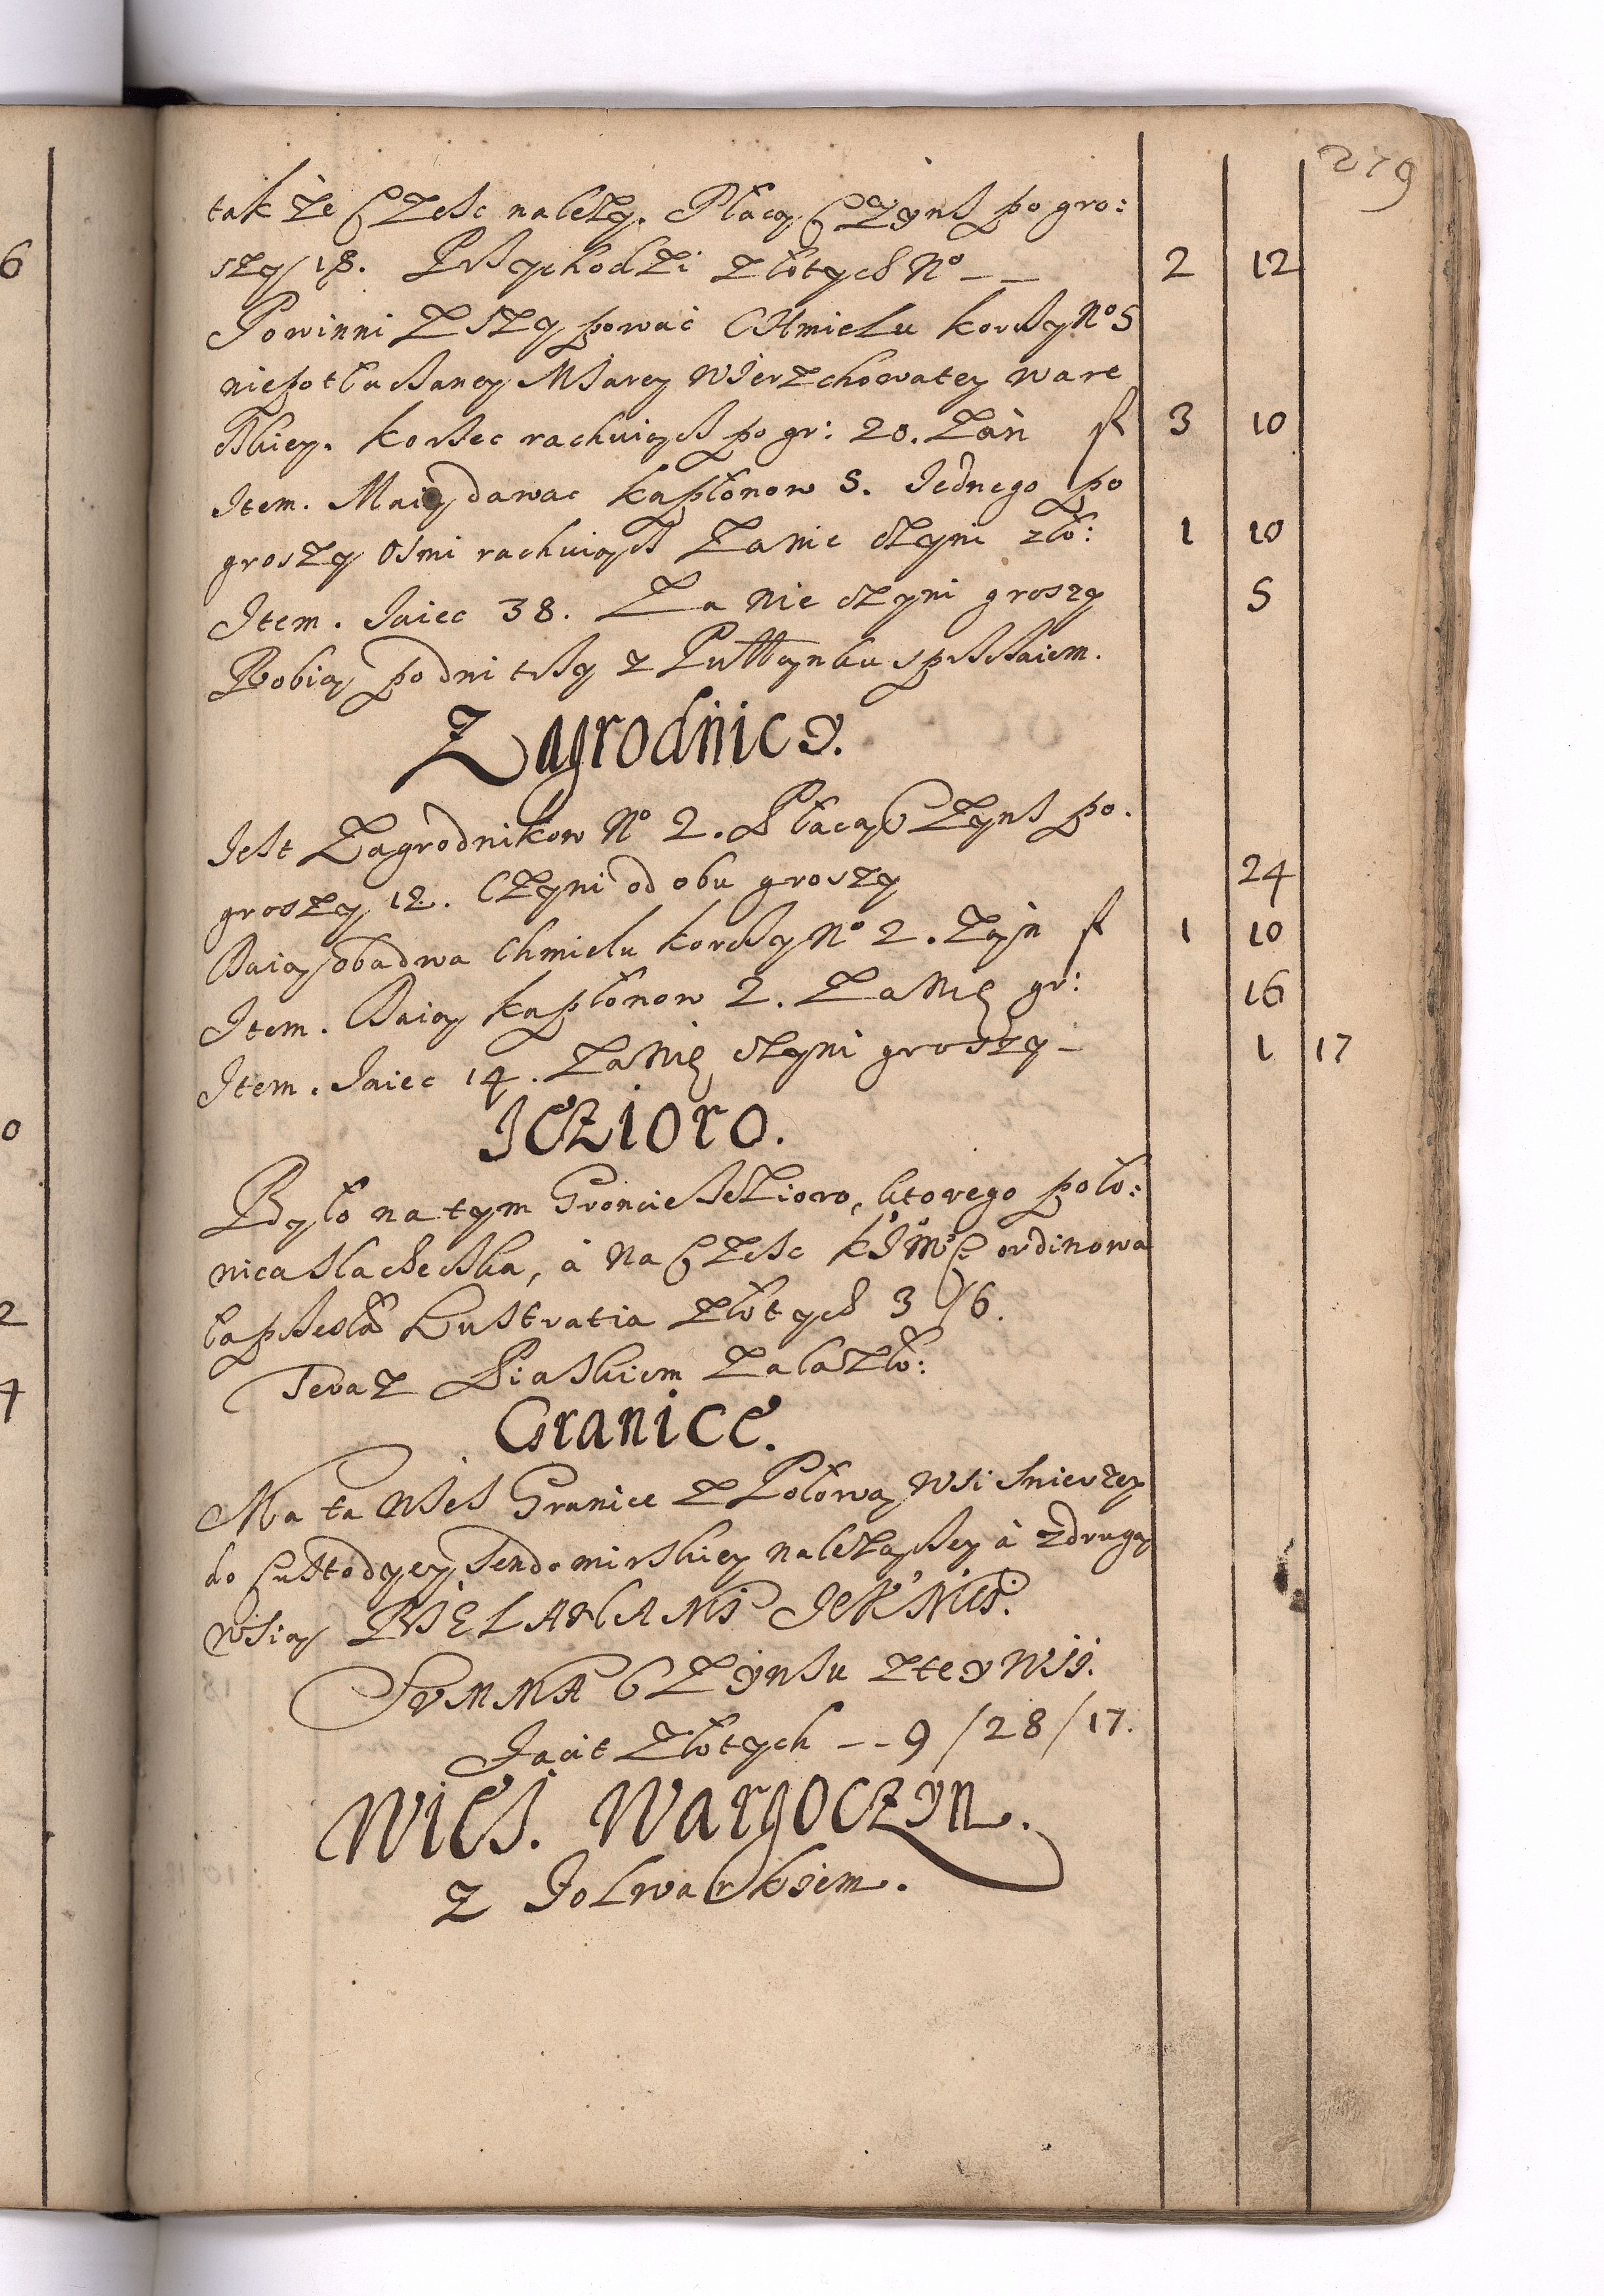 279
tak że Część należy. Płacą Czyńs po gro:
szy 18. Przychodzi złotych No _ _ 2 12
Powinni zszypować Chmielu korcy No 5
niepotłuczaney Miarey Wierzchowatey Wart
skiey. korzec rachuiąc po gr: 20. Zań fl 3 10
Item. Maią dawac kapłonow 5. Jednego po
groszy osmi rachuiąc Zanie czyni zło: 1 10
Item. Jaiec 38. Za nie czyni groszy 5
Robią po dni trzy z Pułłanku sprzężaiem.
Zagrodnicy.
Jest Zagrodnikow No 2. Płacą Czyns po.
groszy 12. Czyni od obu groszy 24
Daią obadwa Chmielu korcy No 2. Zań fl 1 10
Item. Daią kapłonow 2. Zanię gr: 16
Item. Jaiec 14. Zanię czyni groszy _ 1 17
Jezioro.
Było na tym Groncie Jezioro, ktorego poło:
nica slachecka, à na Część ordinowa
ła przeszła Lustratia złotych 3 /6.
Teraz Piaskiem zalazło:
Granice.
Ma ta wieś Granice z Połową wsi Snierzey
do Custodyey Sendomirskiey należącey à zdrugą
wsią BIELANAMI
SUMMA CZynsu z tey Wsi.
Facit Złotych _ _ 9 / 28 / 17.
Wieś. Wargoczyn.
z Folwarkiem.